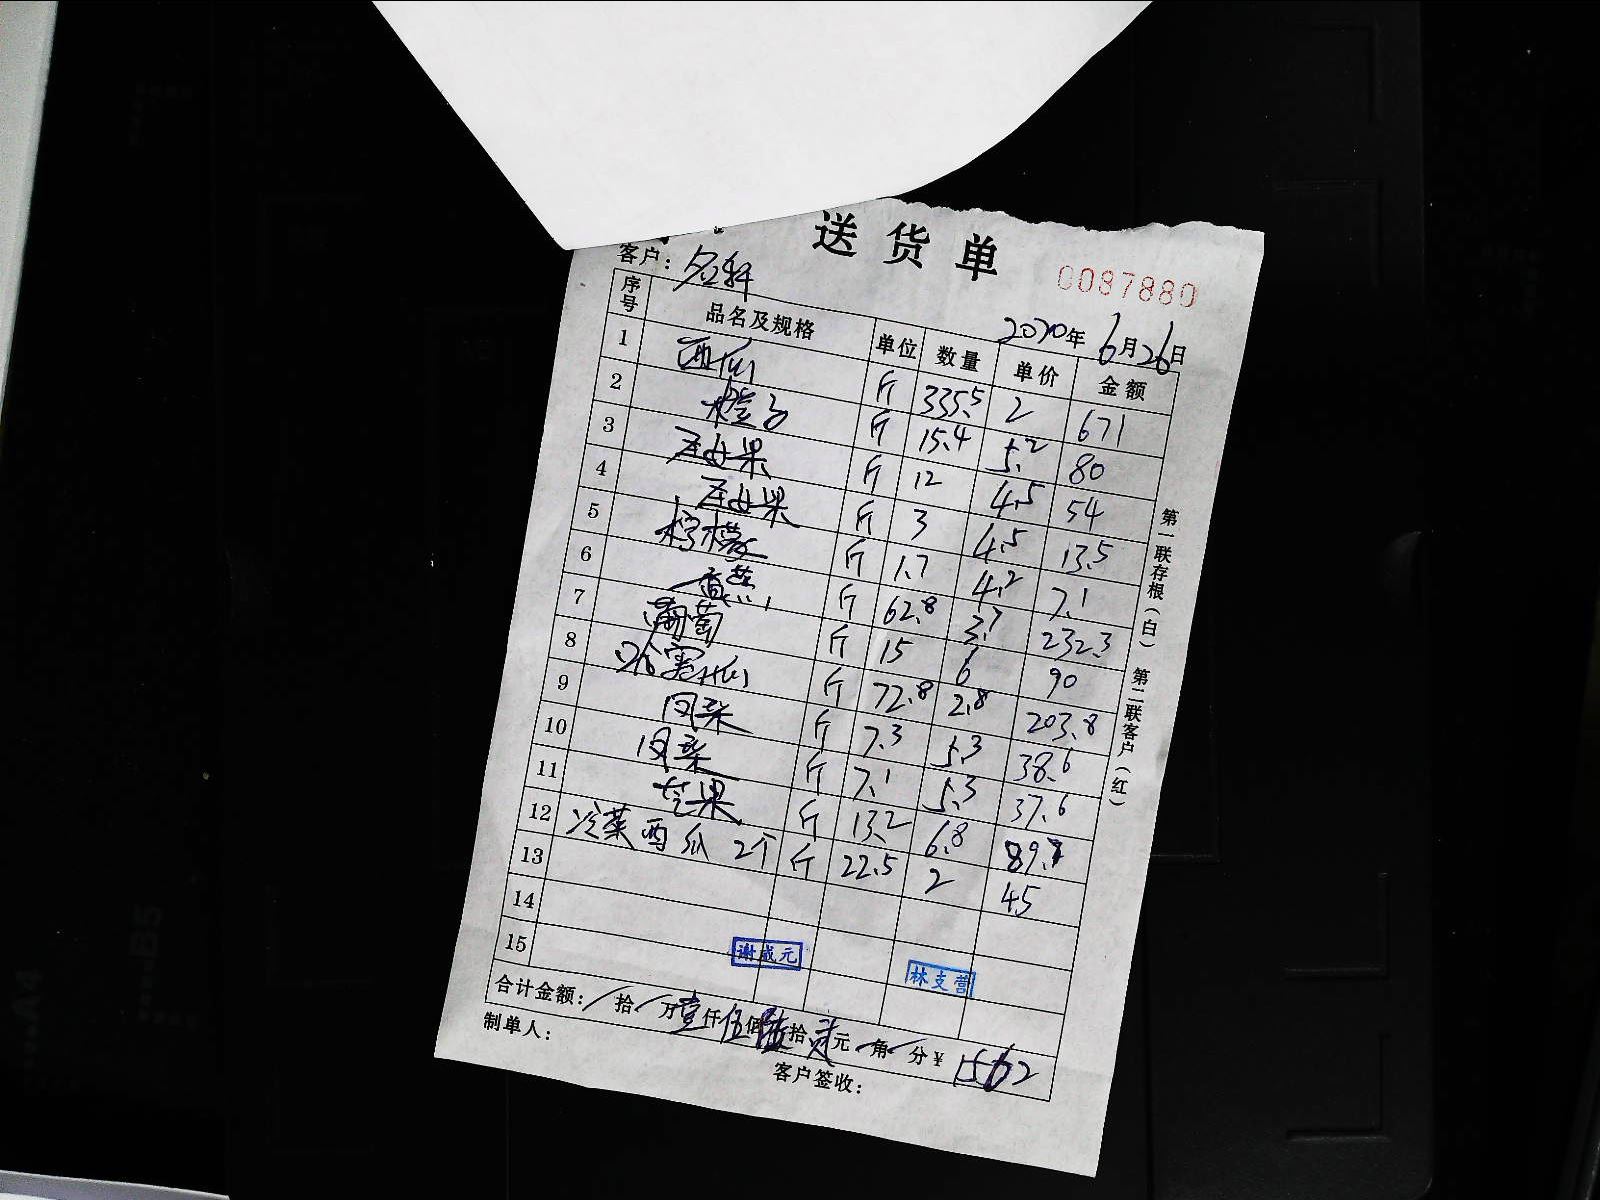 送货单
0087880
客户：名轩
2020年6月26日
序号 品名及规格 单位 数量 单价 金额
1 西瓜 斤 335.5 2 671
2 橙子 斤 15.4 5.2 80
3 圣女果 斤 12 4.5 54
4 圣女果 斤 3 4.5 13.5
5 柠檬 斤 1.7 4.2 7.1
6 香蕉 斤 62.8 3.7 232.3
7 葡萄 斤 15 6 90
8 哈密瓜 斤 72.8 2.8 203.8
9 凤梨 斤 7.3 5.3 38.6
10 凤梨 斤 7.1 5.3 37.6
11 芒果 斤 13.2 6.8
12 冷菜西瓜 2个 斤 22.5 2 45
13
14
15
谢成元
林支营
合计金额：拾万壹仟伍佰陆拾贰元角分¥ 1562
制单人：
客户签收：
第一联存根（白） 第二联客户（红）